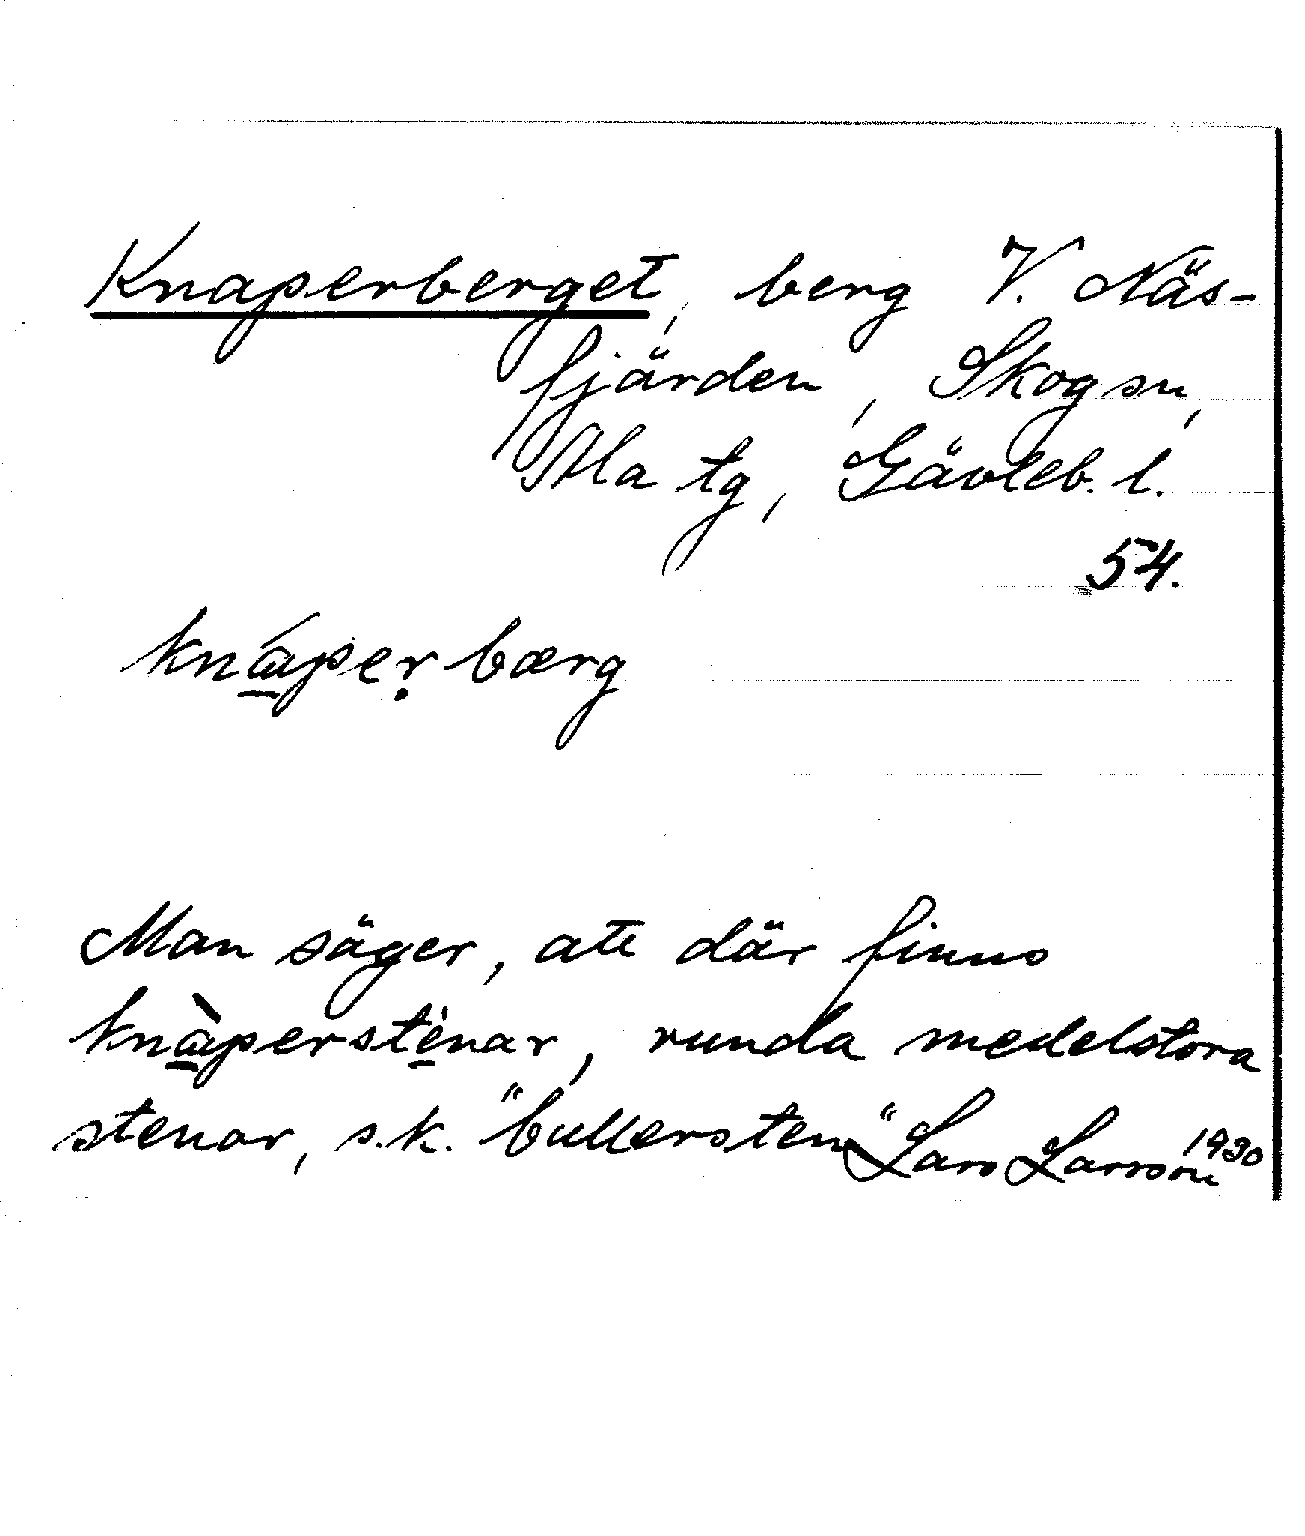 Knaperberget, berg V. Näs-
fjärden, Skogsn,
Ala tg, Gävleb. l.
54.
knáperbærg
Man säger, att där finns
knàperstènar, runda medelstora
stenar, s.k. "bullersten" Lars Larsson 1930